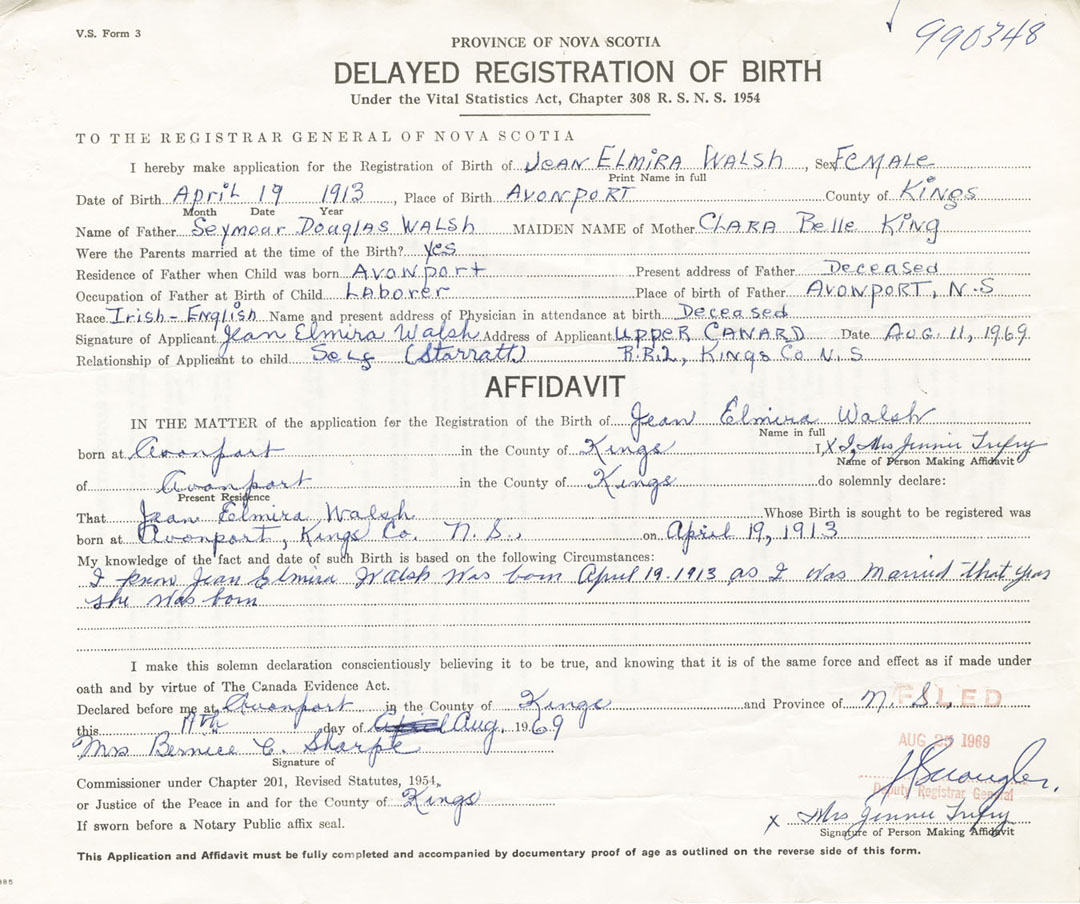 V.S. Form 3
990348
PROVINCE OF NOVA SCOTIA
DELAYED REGISTRATION OF BIRTH
Under the Vital Statistics Act, Chapter 308 R. S. N. S. 1954
TO THE REGISTRAR GENERAL OF NOVA SCOTIA
I hereby make application for the Registration of Birth of JEAN ELMIRA WALSH, Sex FEMALE
Print Name in full
Date of Birth April 19 1913, Place of Birth AVONPORT County of KINGS
Month Date Year
Name of Father Seymour Douglas WALSH MAIDEN NAME of Mother CLARA Belle KING
Were the Parents married at the time of the Birth? yes
Residence of Father when Child was born AVONport Present address of Father Deceased
Occupation of Father at Birth of Child LABORER Place of birth of Father AVONPORT, N.S
Race Irish-English Name and present address of Physician in attendance at birth Deceased
Signature of Applicant Jean Elmira Walsh Address of Applicant UPPER CANARD Date AUG. 11, 1969
Relationship of Applicant to child Self (Starratt) R.R.1, KINGS Co N.S
AFFIDAVIT
IN THE MATTER of the application for the Registration of the Birth of Jean Elmira Walsh
Name in full
born at Avonport in the County of Kings I, X I, Mrs Jennie Trefry
Name of Person Making Affidavit
of Avonport in the County of Kings do solemnly declare:
Present Residence
That Jean Elmira Walsh Whose Birth is sought to be registered was
born at Avonport, Kings Co. N.S., on April 19, 1913
My knowledge of the fact and date of such Birth is based on the following Circumstances:
I know Jean Elmira Walsh was born April 19.1913 as I was married that year
she was born
I make this solemn declaration conscientiously believing it to be true, and knowing that it is of the same force and effect as if made under
oath and by virtue of The Canada Evidence Act.
Declared before me at Avonport in the County of Kings and Province of N. S.
FILED
this day of Aug, 1969
AUG 25 1969
Mrs Bernice C. Sharpe
Signature of
Commissioner under Chapter 201, Revised Statutes, 1954,
Deputy Registrar General
or Justice of the Peace in and for the County of Kings
X Mrs Jennie Trefry
Signature of Person Making Affidavit
If sworn before a Notary Public affix seal.
This Application and Affidavit must be fully completed and accompanied by documentary proof of age as outlined on the reverse side of this form.